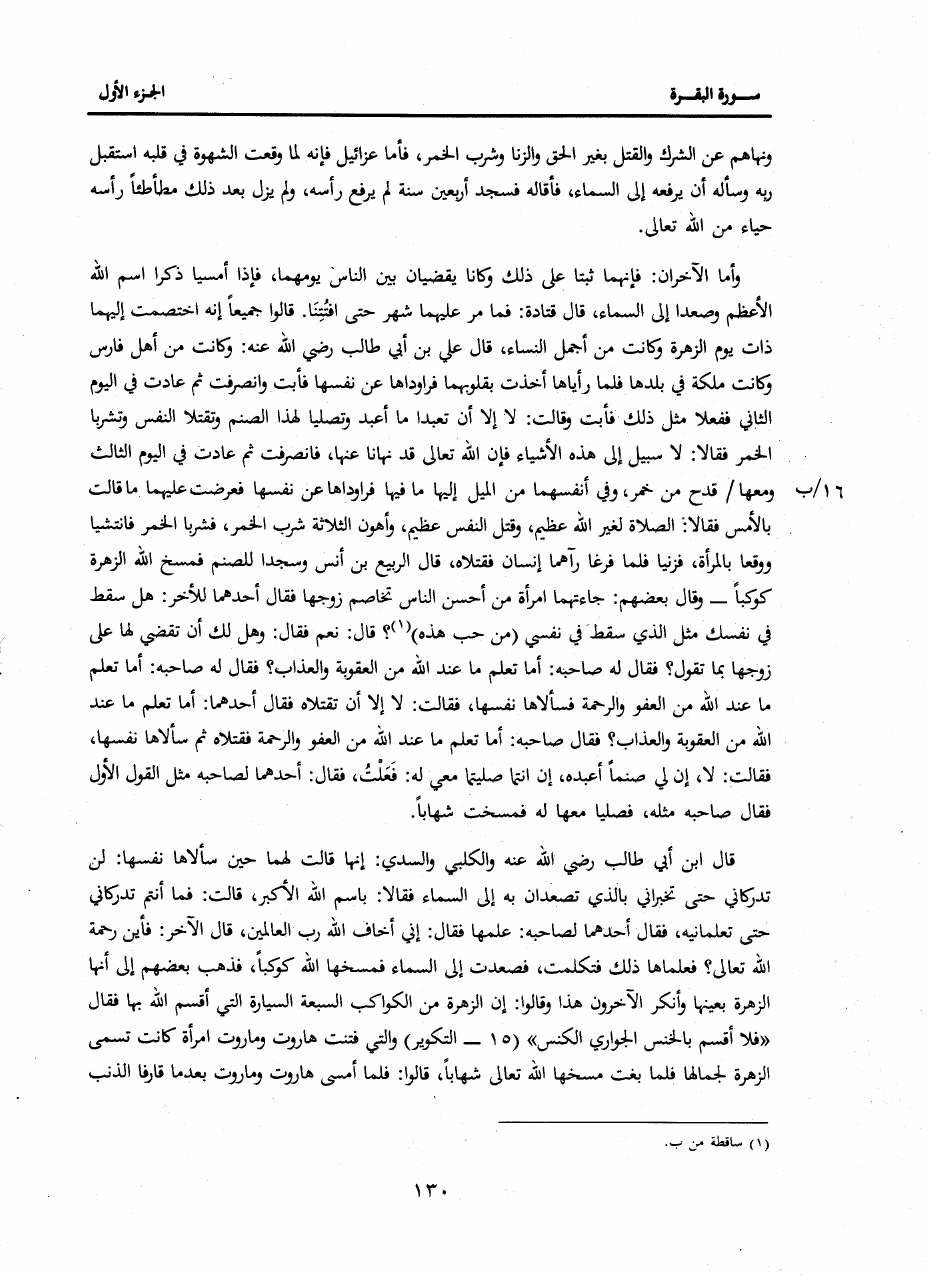 سورة البقرة
الجزء الأول
ونهاهم عن الشرك والقتل بغير الحق والزنا وشرب الخمر، فأما عزائيل فإنه لما وقعت الشهوة في قلبه استقبل
ربه وسأله أن يرفعه إلى السماء، فأقاله فسجد أربعين سنة لم يرفع رأسه، ولم يزل بعد ذلك مطأطئاً رأسه
حياء من الله تعالى.
وأما الآخران: فإنهما ثبتا على ذلك وكانا يقضيان بين الناس يومهما، فإذا أمسيا ذكرا اسم الله
الأعظم وصعدا إلى السماء، قال قتادة: فما مر عليهما شهر حتى افتُتِنَا. قالوا جميعاً إنه اختصمت إليهما
ذات يوم الزهرة وكانت من أجمل النساء، قال علي بن أبي طالب رضي الله عنه: وكانت من أهل فارس
وكانت ملكة في بلدها فلما رأياها أخذت بقلوبهما فراوداها عن نفسها فأبت وانصرفت ثم عادت في اليوم
الثاني ففعلا مثل ذلك فأبت وقالت: لا إلا أن تعبدا ما أعبد وتصليا لهذا الصنم وتقتلا النفس وتشربا
الخمر فقالا: لا سبيل إلى هذه الأشياء فإن الله تعالى قد نهانا عنها، فانصرفت ثم عادت في اليوم الثالث
ومعها / قدح من خمر، وفي أنفسهما من الميل إليها ما فيها فراوداها عن نفسها فعرضت عليهما ما قالت
١٦/ب
بالأمس فقالا: الصلاة لغير الله عظيم، وقتل النفس عظيم، وأهون الثلاثة شرب الخمر، فشربا الخمر فانتشيا
ووقعا بالمرأة، فزنيا فلما فرغا رآهما إنسان فقتلاه، قال الربيع بن أنس وسجدا للصنم فمسخ الله الزهرة
كوكباً — وقال بعضهم: جاءتهما امرأة من أحسن الناس تخاصم زوجها فقال أحدهما للآخر: هل سقط
في نفسك مثل الذي سقط في نفسي (من حب هذه)(١)؟ قال: نعم فقال: وهل لك أن تقضي لها على
زوجها بما تقول؟ فقال له صاحبه: أما تعلم ما عند الله من العقوبة والعذاب؟ فقال له صاحبه: أما تعلم
ما عند الله من العفو والرحمة فسألاها نفسها، فقالت: لا إلا أن تقتلاه فقال أحدهما: أما تعلم ما عند
الله من العقوبة والعذاب؟ فقال صاحبه: أما تعلم ما عند الله من العفو والرحمة فقتلاه ثم سألاها نفسها،
فقالت: لا، إن لي صنماً أعبده، إن انتما صليتما معي له: فَعَلْتُ، فقال: أحدهما لصاحبه مثل القول الأول
فقال صاحبه مثله، فصليا معها له فمسخت شهاباً.
قال ابن أبي طالب رضي الله عنه والكلبي والسدي: إنها قالت لهما حين سألاها نفسها: لن
تدركاني حتى تخبراني بالذي تصعدان به إلى السماء فقالا: باسم الله الأكبر، قالت: فما أنتم تدركاني
حتى تعلمانيه، فقال أحدهما لصاحبه: علمها فقال: إني أخاف الله رب العالمين، قال الآخر: فأين رحمة
الله تعالى؟ فعلماها ذلك فتكلمت، فصعدت إلى السماء فمسخها الله كوكباً، فذهب بعضهم إلى أنها
الزهرة بعينها وأنكر الآخرون هذا وقالوا: إن الزهرة من الكواكب السبعة السيارة التي أقسم الله بها فقال
«فلا أقسم بالخنس الجواري الكنس» (١٥ — التكوير) والتي فتنت هاروت وماروت امرأة كانت تسمى
الزهرة لجمالها فلما بغت مسخها الله تعالى شهاباً، قالوا: فلما أمسى هاروت وماروت بعدما قارفا الذنب
(١) ساقطة من ب.
١٣٠